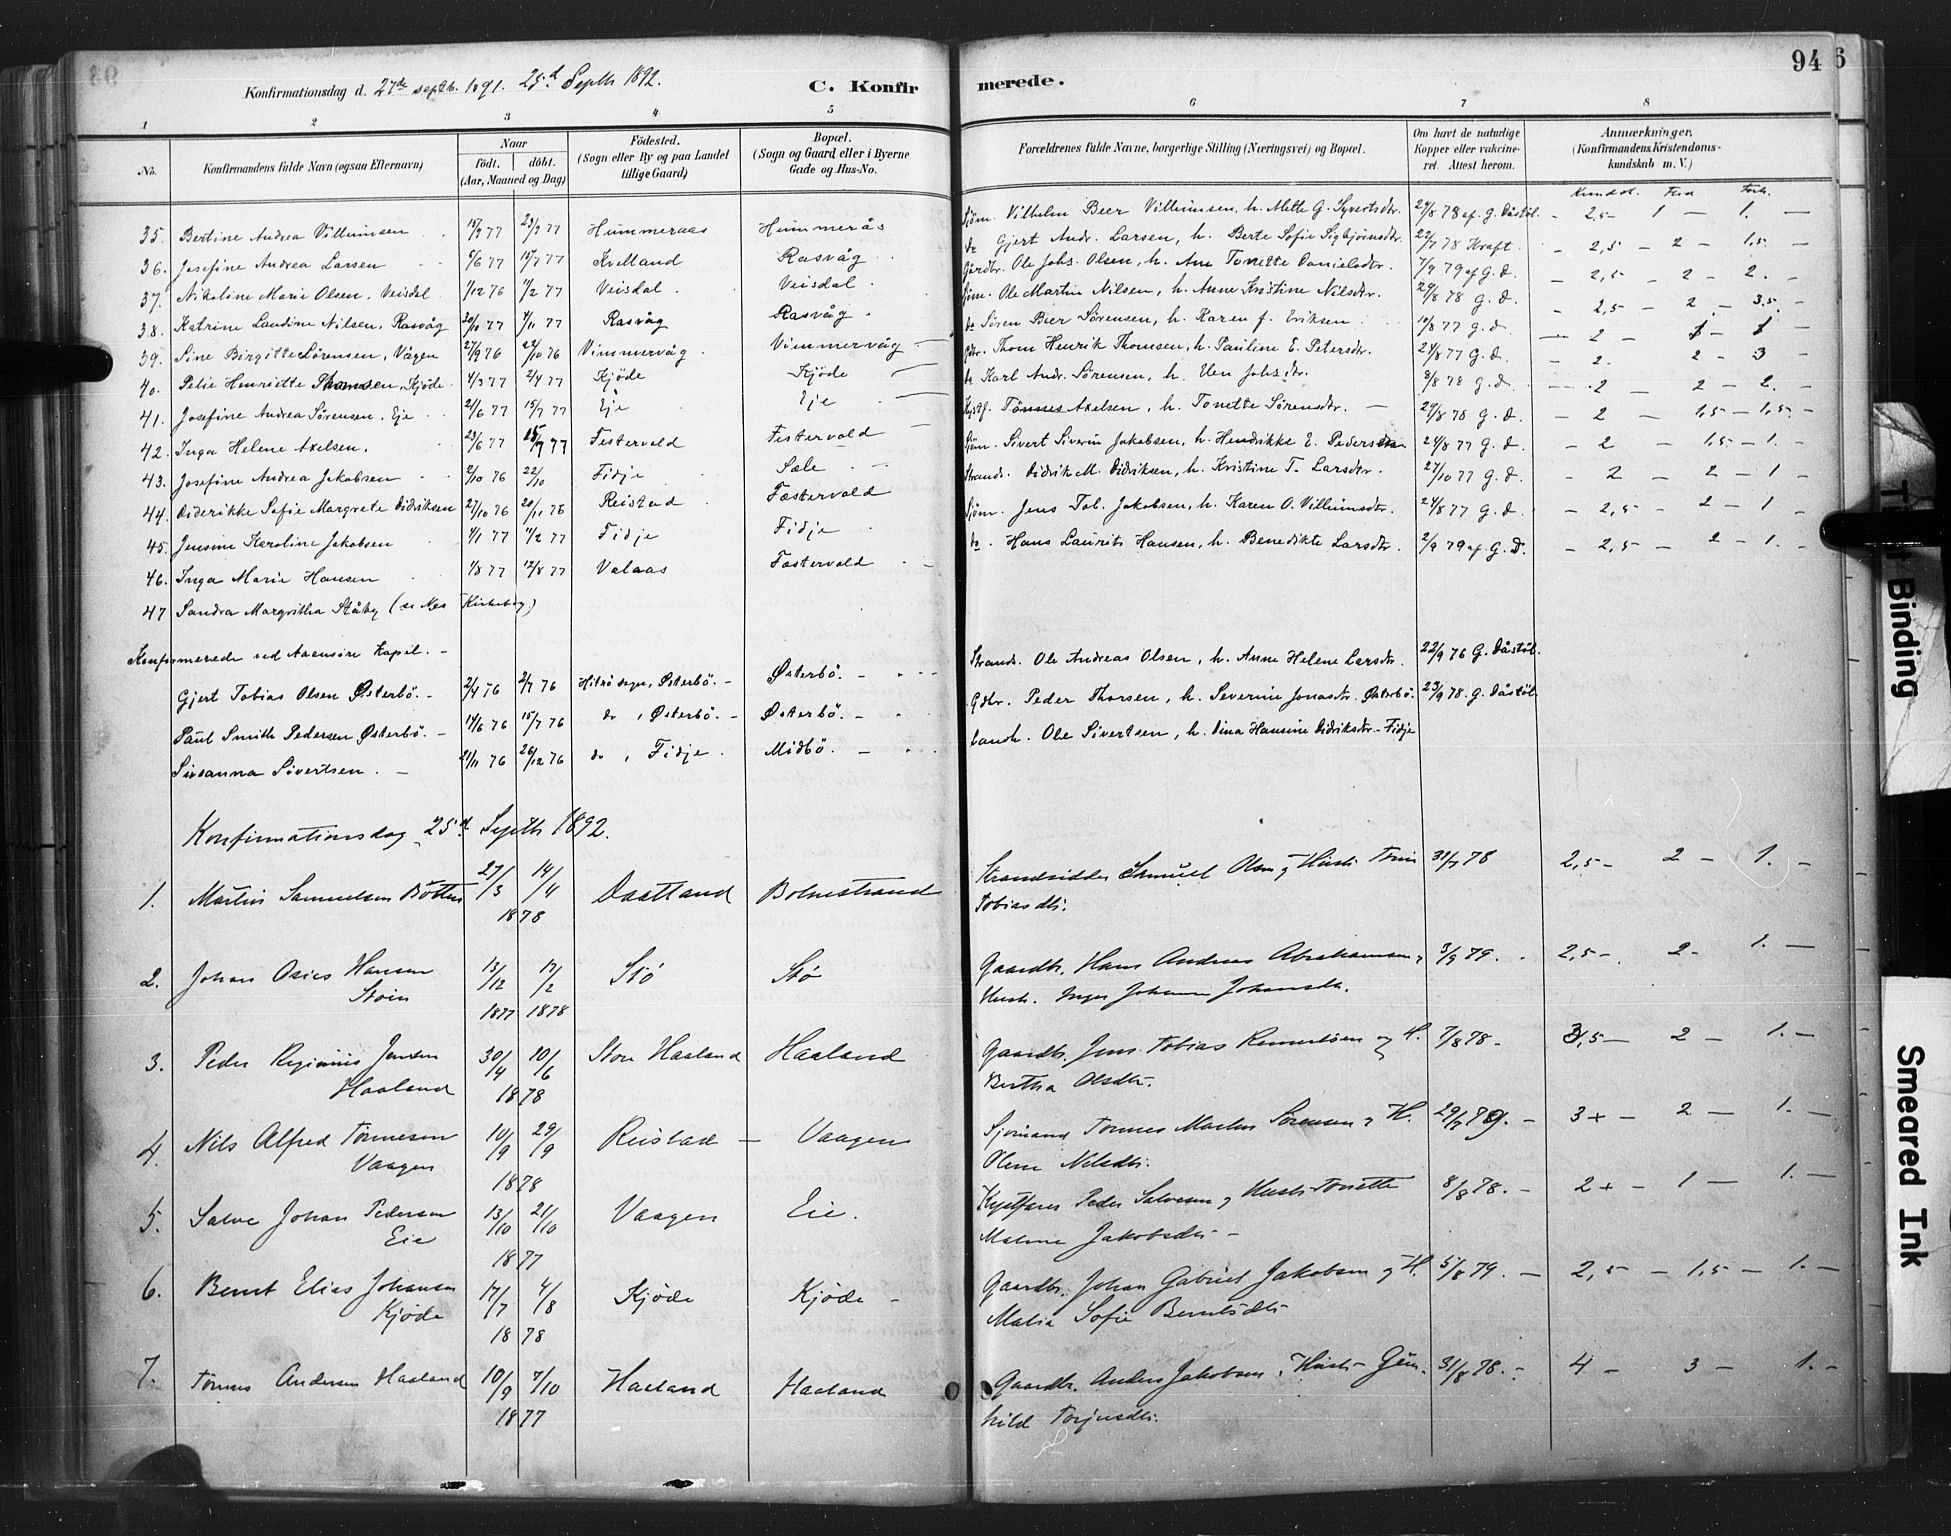 Konfirmationsdag d. 27de septb. 1891. 25d Septb 1892. C. Konfirmerede. 94
1 2 3 4 5 6 7 8
No. Konfirmandens fulde Navn (ogsaa Efternavn) Naar födt. döbt. (Aar, Maaned og Dag) Födested. (Sogn eller By og paa Landet tillige Gaard) Bopæl. (Sogn og Gaard eller i Byerne Gade og Hus-No. Forældrenes fulde Navne, borgerlige Stilling (Næringsvei) og Bopæl. Om havt de naturlige Kopper eller vaccineret. Attest herom. Anmærkninger. (Konfirmandens Kristendomskundskab m. V.)
35. Bertine Andrea Villumsen 23/9 77 Hummeraas Hummerås Sjöm. Vilhelm Beer Villumsen, h. Mette G. Syvertsdtr. 27/8 78 af. G. Dåstöl. - 2,5 - 1 - 1. -
36. Josefine Andrea Larsen 5/6 77 15/7 77 Kvelland Rasvåg do Gjert Andr. Larsen, h. Berte Sofie Sigbjörnsdtr. 22/7 78 Kraft - 2,5 - 2 - 1,5 -
37. Nikoline Marie Olsen, Veisdal 1/12 76 11/2 77 Veisdal Veisdal Gårdbr. Ole Johs. Olsen, h. Ane Tonette Danielsdtr. 7/9 79 af G. D. - 2,5 - 2 - 2. -
38. Katrine Landine Nilsen, Rasvåg 30/10 77 4/11 77 Rasvåg Rasvåg Sjöm. Ole Martin Nilsen, h. Anne Kristine Nilsdtr. 29/8 78 G. D. - 2,5 - 2 - 3,5 -
39. Sine Birgitte Sörensen, Vågen 27/9 76 22/10 76 Vimmervåg Vimmervåg do Sören Beer Sörensen, h. Karen f. Eriksen 10/8 77 G. D. - 2 - 1 - 1 -
40. Petie Henriette Thomsen, Kjöde 4/3 77 2/4 77 Kjöde Kjöde Gdbr. Thom Henrik Thomsen, h. Pauline E. Petersdtr. 24/8 77 G. D. - 2. 2 - 3 -
41. Josefine Andrea Sörensen, Eje 21/6 77 15/7 77 Eje Eje do Karl Andr. Sörensen, h. Uen Johs.dtr. 8/8 78 G. D. - 2 - 2 - 2. -
42. Inga Helene Axelsen. 23/6 77 77 Festervold Festervold Kystf. Tönnes Axelsen, h. Tonette Sörensdtr. - 29/8 78 G. D. - 2 - 1,5 - 1,5 -
43. Josefine Andrea Jakobsen 2/10 76 22/10 Fidje Sele Sjöm. Sivert Siverin Jakobsen, h. Hendrikke E. Pedersen 24/8 77 G. D. - 2 - 1,5 - 1. -
44. Diderikke Sofie Margrete Didriksen 27/10 76 20/11 76 Reistad Fostervold Strands. Didrik M. Didriksen, h. Kristine T. Larsdtr. 27/10 77 G. D. - 2 2 - 1 -
45. Jensine Karoline Jakobsen 4/1 77 11/2 77 Fidje Fidje Sjöm. Jens Tob. Jakobsen, h. Karen O. Villumsdtr. 24/8 77 G. D. - 2,5 - 2 - 1 -
46. Inga Marie Hansen 1/8 77 12/8 77 Valaas Fostervold do. Hans Laurits Hansen, h. Benedikte Larsdtr. 2/9 79 af. G. D. - 2,5 - 2 - 1. -
47 Sandra Margritha Ståby (se Nes Kirkebog)
Konfirmerede ved Aaensire Kapel. -
Gjert Tobias Olsen Österbö. - 2/4 76 2/7 76 Hitrö sogn, Österbö. - Österbö. - Strands. Ole Andreas Olsen, h. Anne Helene Larsdtr. 22/9 76 G. Dåstöl.
Paul Smith Pedersen Österbö. - 14/6 76 15/7 76 do, Österbö. - Österbö. - Gdbr. Peder Thorsen, h. Severine Jonasdtr. Österbö. 23/9 78. G. Dåstöl
Susanna Sivertsen. - 21/11 76 26/12 76 do, Fidje. Midbö. - Landh. Ole Sivertsen, h. Dina Hansine Didriksdtr. - Fidje
Konfirmationsdag 25d Septb 1892.
1. Martin Samuelsen Böttus 27/3 14/4 1878 Daatland Bolnestrand Strandsidder Samuel Olsen og Hustr Trine Tobiasdtr. 31/7 78 2,5 - 2 - 1. -
2. Johan Osias Hansen Stöin 13/12 17/2 1877 1878 Stö Stö Gaardbr. Hans Andreas Abrahamsen, Hust. Inger Johanne Johansdtr. 3/9 79. 2,5 - 2 - 1. -
3. Peder Reginius Jensen Haaland 30/4 10/6 1878 Store Haaland Haaland Gaardbr. Jens Tobias Reinertsen og H. Bertha Olsdtr. 7/8 78 - 3,5 - 2 - 1. -
4. Nils Alfred Tönnesen Vaagen 10/9 29/9 1878 Reistad - Vaagen Sjömand Tönnes Martin Sörensen og H. Olene Nilsdtr. 29/7 79. - 3+ - 2 - 1. -
5. Salve Johan Pedersen Eie 13/10 21/10 1877 Vaagen Eie. Kystfarer Peder Salvesen og Hustr Tonette Malene Jakobsdtr - 8/8 78. - 2+ - 1 - 1. -
6. Bernt Elias Johansen Kjöde 17/7 4/8 1878 Kjöde Kjöde - Gaardbr. Johan Gabriel Jakobsen og H. Malia Sofie Berntsdtr 5/8 79. - 2,5 - 1,5 - 1. -
7. Tönnes Andersen Haaland 10/9 7/10 1877 Haaland Haaland Gaardbr. Anders Jakobsen, Hustr Gunhild Torjusdtr. 31/8 78. - 4 - 3 - 1. -
Tight Binding
Smeared Ink